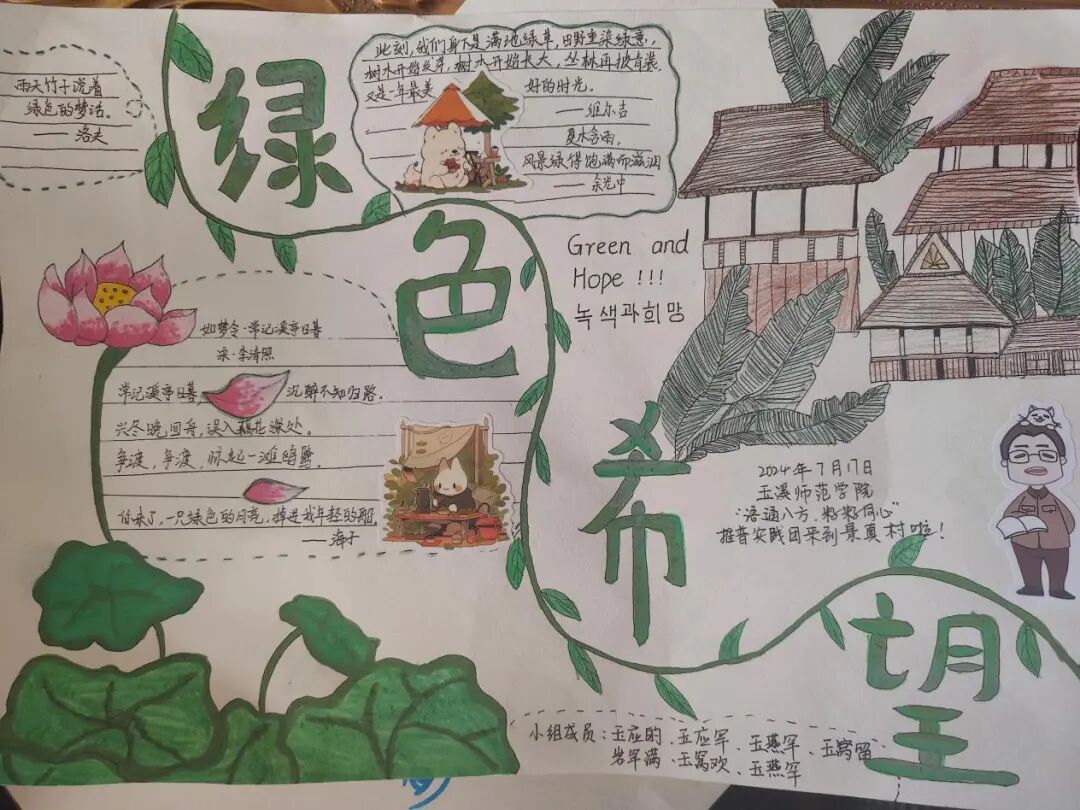 绿色希望
雨天竹子说着
绿色的梦话。
——洛夫
此刻,我们身下是满地绿草,田野重染绿意,
树木开始发芽,树木开始长大,丛林再披青装,
又是一年最美
好的时光。
——维尔吉
夏木含雨,
风景绿得饱满而滋润
——余光中
Green and
Hope !!!
녹색과희망
如梦令·常记溪亭日暮
宋·李清照
常记溪亭日暮,沉醉不知归路。
兴冬晚回舟,误入藕花深处。
争渡,争渡,惊起一滩鸥鹭。
你来了,一只绿色的月亮,掉进我年轻的船
——海子
2024年7月17日
玉溪师范学院
"语通八方,籽籽同心"
推普实践团来到景真村啦!
小组成员:玉应的、玉应罕、玉燕罕、玉窝留
岩罕满、玉窝欢、玉燕罕